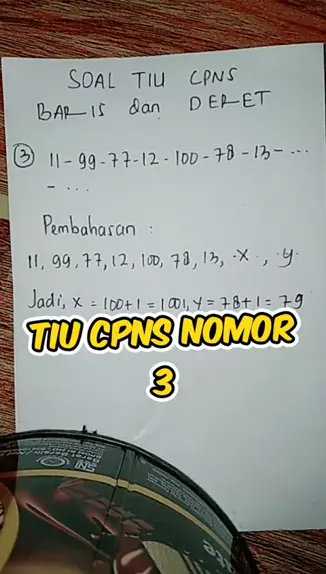 SOAL TIU CPNS
BARIS dan DERET
③ 11-99-77-12-100-78-13-...
-...
Pembahasan :
11, 99, 77, 12, 100, 78, 13, .X., .y.
Jadi, X = 100+1 = 1001, Y = 78+1 = 79
TIU CPNS NOMOR
3
SNI